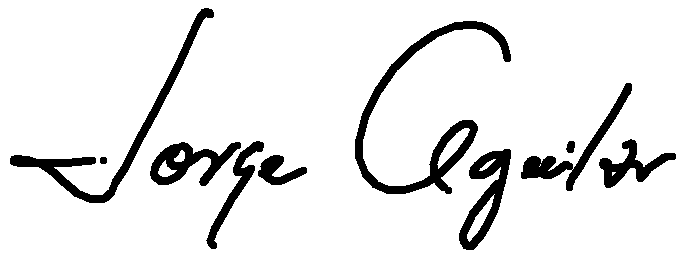 Jorge Aguilar